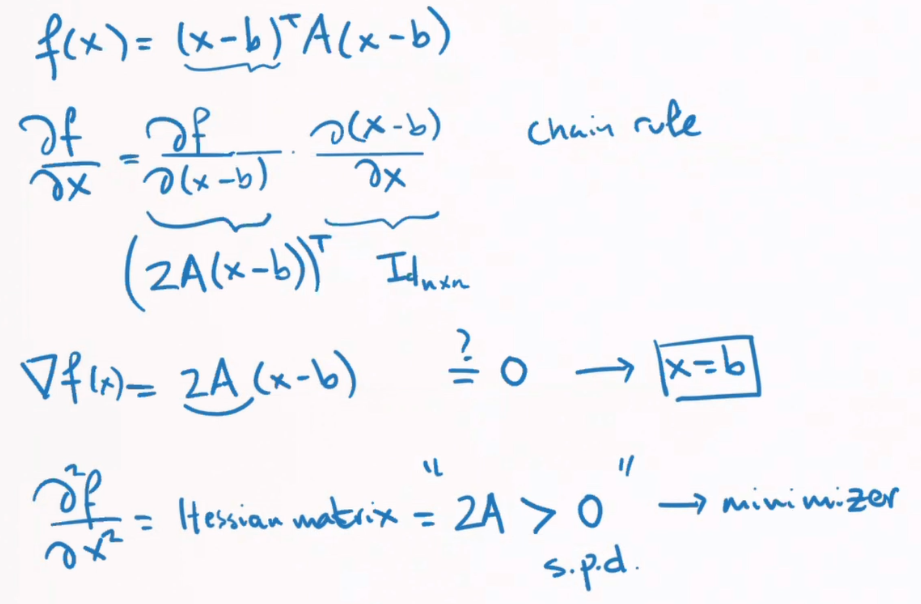 f(x) = (x-b)ᵀA(x-b)
∂f/∂x = ∂f/∂(x-b) · ∂(x-b)/∂x chain rule
(2A(x-b))ᵀ Idₙₓₙ
∇f(x) = 2A(x-b) ≟ 0 → x=b
∂²f/∂x² = Hessian matrix = "2A > 0" → minimizer
s.p.d.